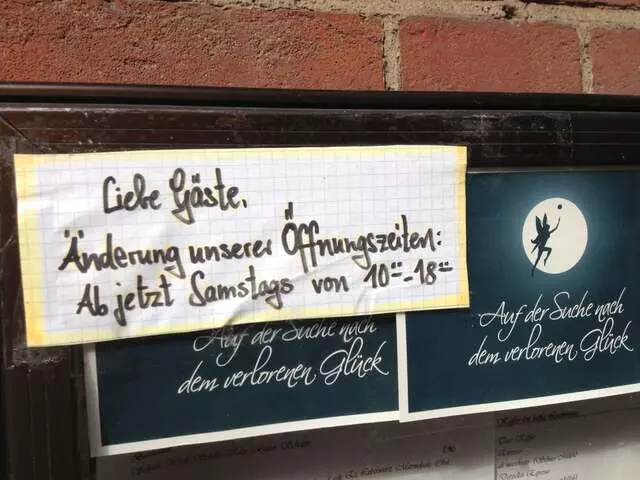 Liebe Gäste,
Änderung unserer Öffnungszeiten:
Ab jetzt Samstags von 10°°-18°°
Auf der Suche nach
dem verlorenen Glück
Auf der Suche nach
dem verlorenen Glück